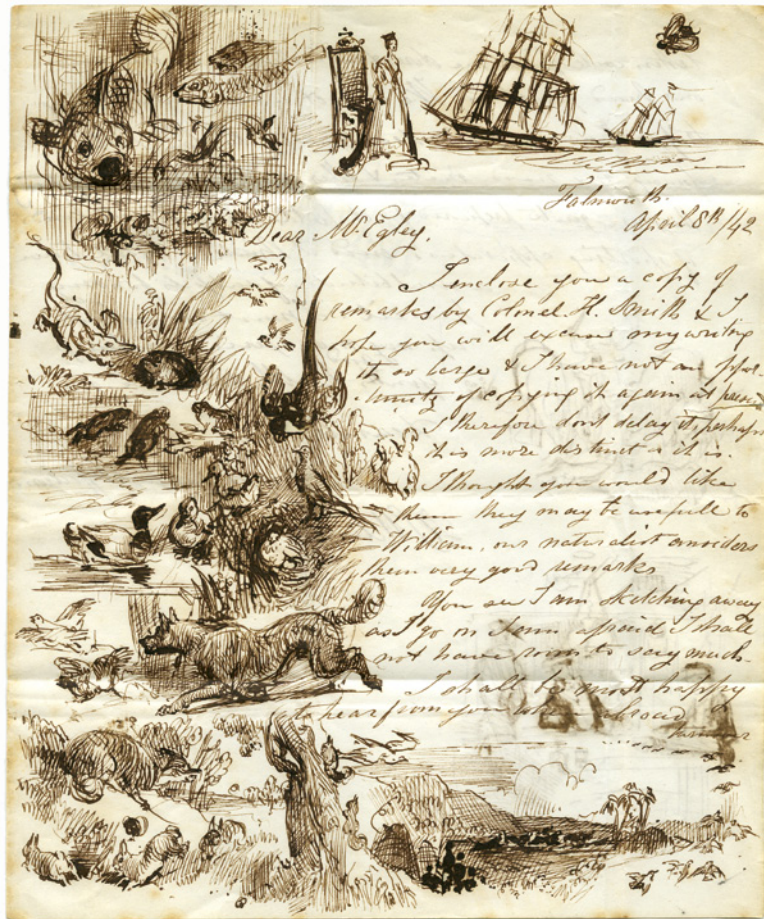 Falmouth.
April 8th/42
Dear Mr Egley,
I enclose you a copy of
remarks by Colonel H. Smith & I
hope you will excuse my writing
it so large & I have not an oppor-
tunity of copying it again at present
I therefore dont delay it, perhaps
it is more distinct as it is.
I thought you would like
them they may be usefull to
William, our naturalist considers
them very good remarks
You see I am sketching away
as I go on & am afraid I shall
not have room to say much.
I shall be most happy
to hear from you when abroad